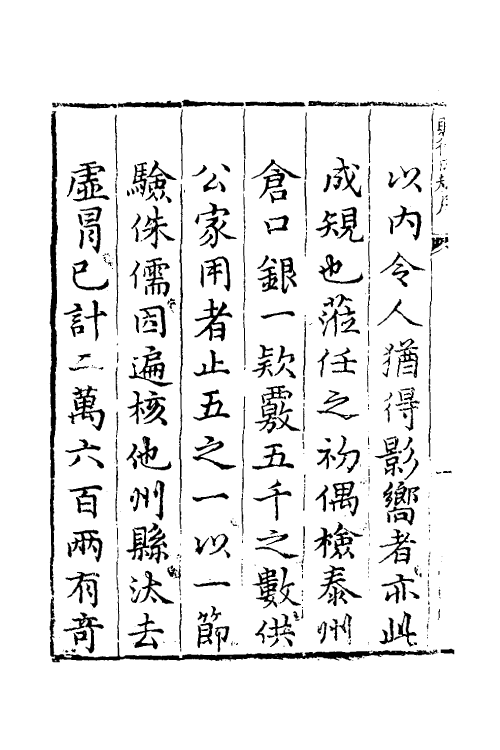 以内令人猶得影嚮者亦此
成䂓也蒞任之初偶檢泰州
倉口銀一欵覈五千之數供
公家用者止五之一以一節
驗侏儒因遍核他州縣汰去
虛冒已計二萬六百兩有竒